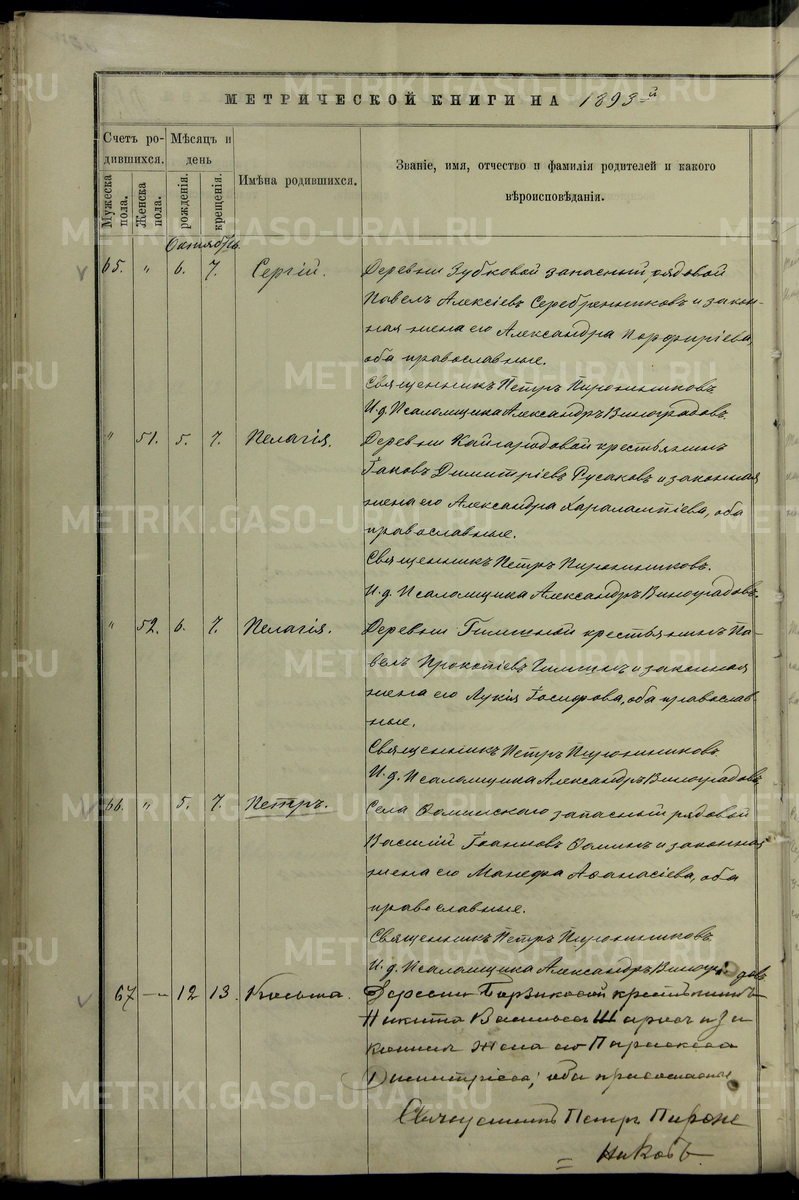 МЕТРИЧЕСКОЙ КНИГИ НА 1893-й
Счетъ ро-
дившихся.
Мужеска
пола.
Женска
пола.
Мѣсяцъ и
день
рожденія.
крещенія.
Имѣна родившихся.
Званіе, имя, отчество и фамилія родителей и какого
вѣроисповѣданія.
Октябрь.
65. " 6. 7. Сергій. Деревни Зубковой запасный рядовой
Павелъ Алексіевъ Серебренниковъ и закон-
ная жена его Александра Порфиріева,
оба православные.
Священникъ Петръ Пирожниковъ
И.д. Псаломщика Александръ Виноградовъ.
" 51. 5. 7. Пелагія. Деревни Кайгородовой крестьянинъ
Іаковъ Димитріевъ Русаковъ и законная
жена его Александра Харалампіева, оба
православные.
Священникъ Петръ Пирожниковъ.
И.д. Псаломщика Александръ Виноградовъ.
" 52. 6. 7. Пелагія. Деревни крестьянинъ Па-
велъ Прокопіевъ и законная
жена его Лукія Іосифова, оба православ-
ные.
Священникъ Петръ Пирожниковъ
И.д. Псаломщика Александръ Виноградовъ
66. " 5. 7. Петръ. Села Ѳоминскаго запасный рядовой
Василій Іоанновъ Ѳоминъ и законная
жена его Манефа Аѳанасіева, оба
православные.
Священникъ Петръ Пирожниковъ.
И.д. Псаломщика Александръ Виноградовъ
67 — " 12 13. Косьма. Деревни крестьянинъ
Никита Васильевъ и за
конная жена его Параскева
Димитріева, оба православные
Священникъ Петръ Пирож
= никовъ.
METRIKI.GASO-URAL.RU